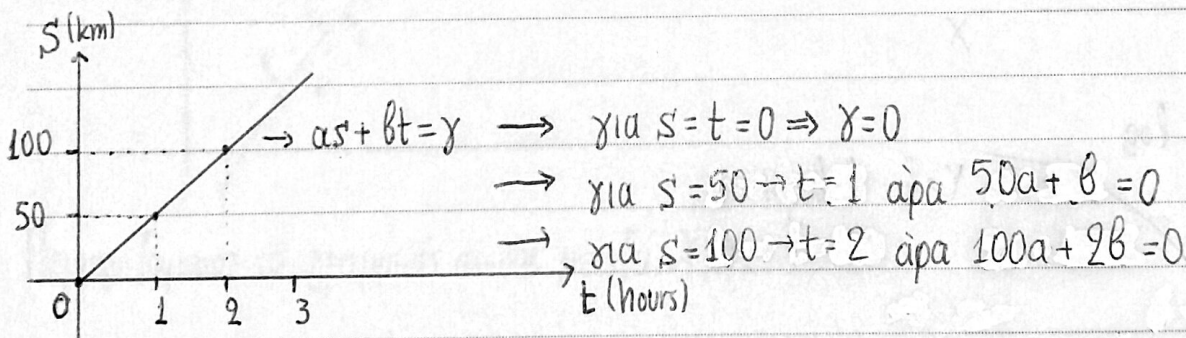 S (km)
100
50
0
1 2 3
t (hours)
→ αs + βt = γ → για s = t = 0 ⇒ γ = 0
→ για s = 50 → t = 1 άρα 50α + β = 0
→ για s = 100 → t = 2 άρα 100α + 2β = 0